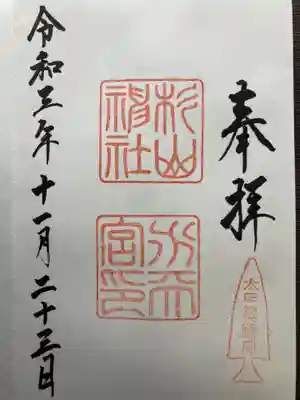 奉拝
杉山
神社
水天
宮印
令和三年十一月二十三日